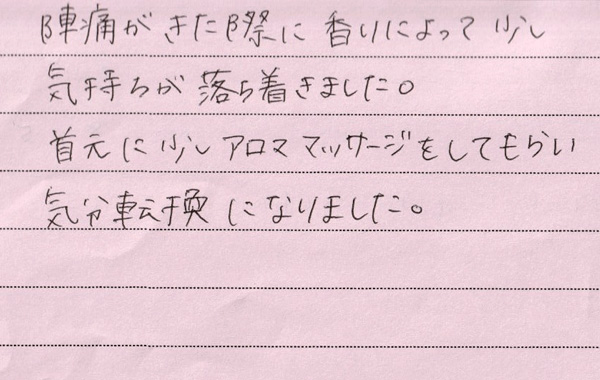 陣痛がきた際に 香りによって 少し
気持ちが 落ち着きました。
首元に少しアロママッサージをしてもらい
気分転換になりました。